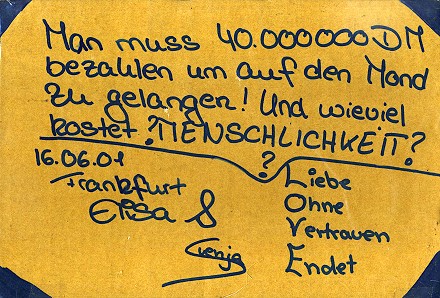 Man muss 40.000000 DM
bezahlen um auf den Mond
zu gelangen! Und wieviel
kostet ?MENSCHLICHKEIT?
?
16.06.01
Frankfurt
Elisa S
Svenja
Liebe
Ohne
Vertrauen
Endet